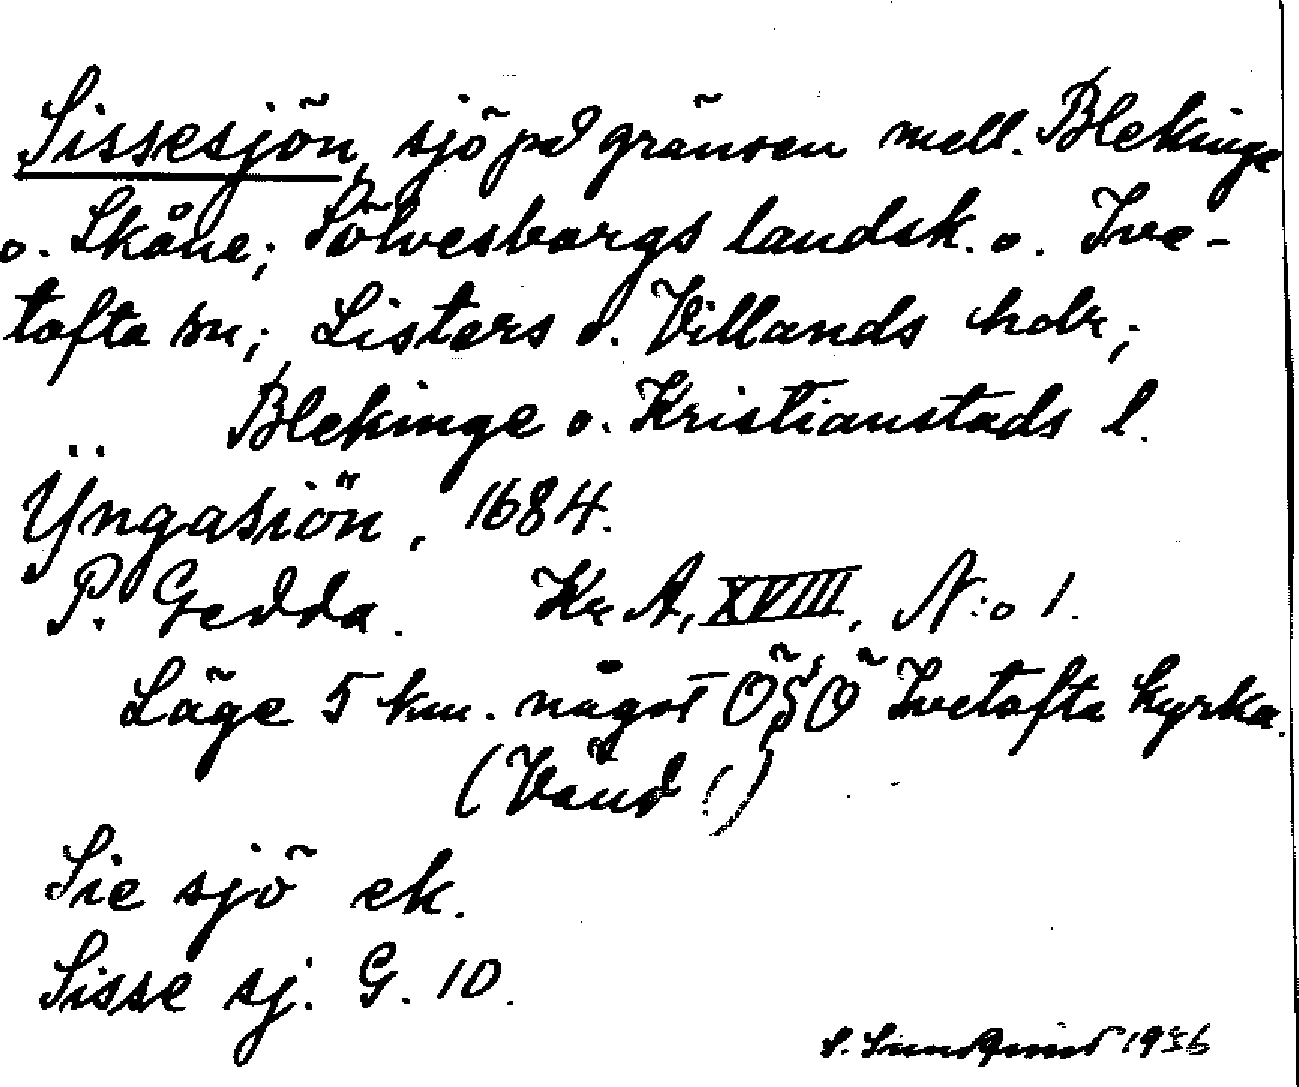 Sissesjön, sjö på gränsen mell. Blekinge
o. Skåne; Sölvesborgs landsk. o. Ive-
tofta sn; Listers o. Villands hdr;
Blekinge o. Kristianstads l.
Ÿngasiön, 1684.
P. Gedda. Kr A, XVIII, N:o 1.
Läge 5 km. något ÖSÖ Ivetofta kyrka.
(Vänd!)
Sie sjö ek.
Sisse sj. G. 10.
S. Sundqvist 1936